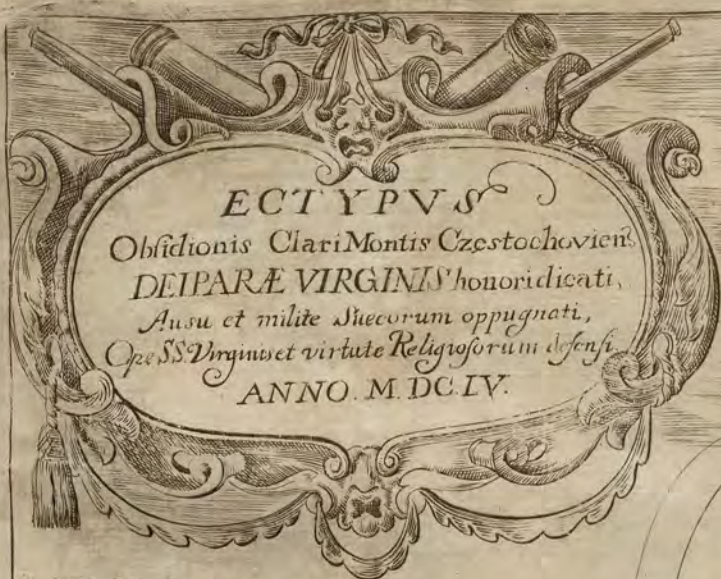 ECTYPVS
Obsidionis Clari Montis Częstochoviens
DEIPARÆ VIRGINIS honori dicati,
Ausu et milite Suecorum oppugnati,
Ope SS. Virginis et virtute Religiosorum defensi.
ANNO. M. DC. LV.